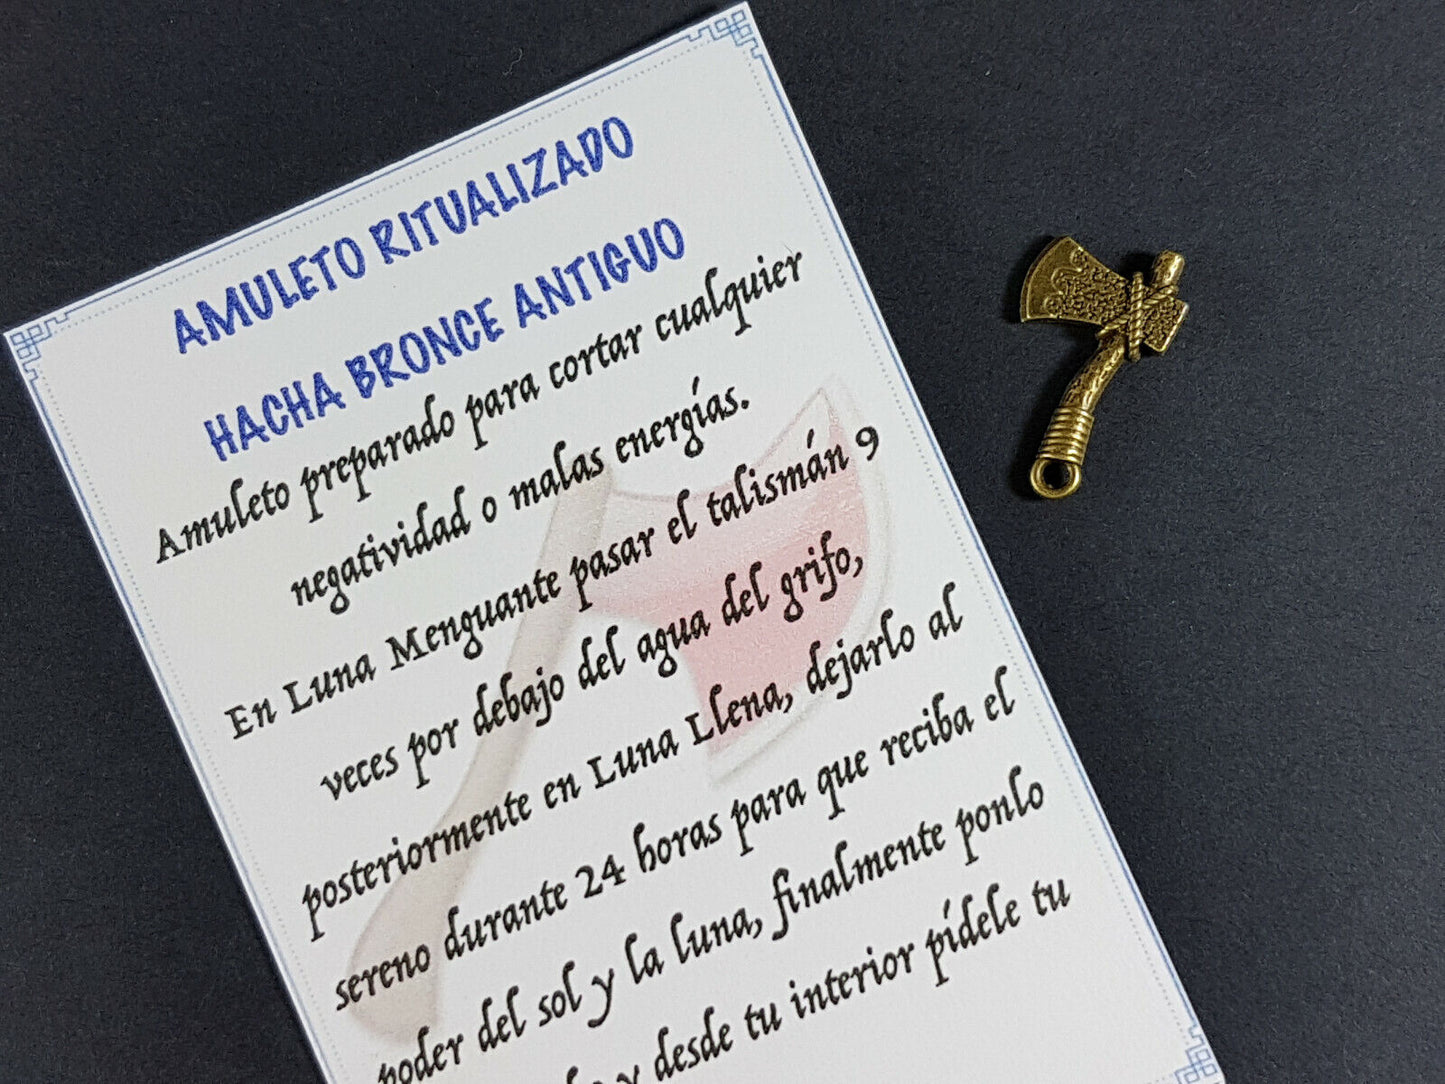 AMULETO RITUALIZADO
HACHA BRONCE ANTIGUO
Amuleto preparado para cortar cualquier
negatividad o malas energías.
En Luna Menguante pasar el talismán 9
veces por debajo del agua del grifo,
posteriormente en Luna Llena, dejarlo al
sereno durante 24 horas para que reciba el
poder del sol y la luna, finalmente ponlo
y desde tu interior pídele tu